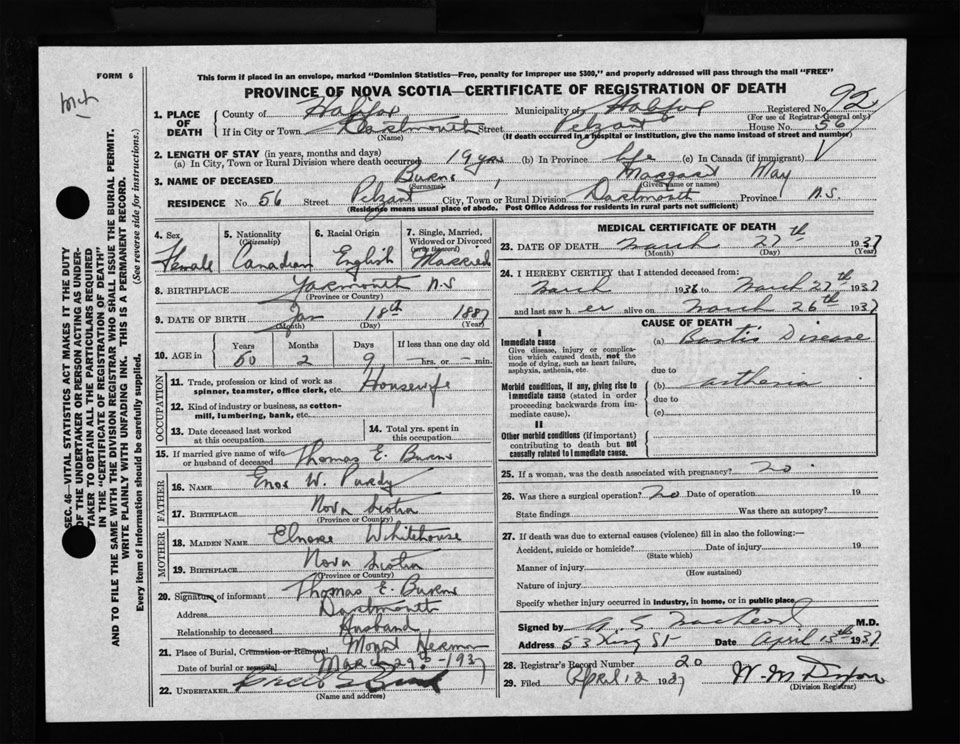 FORM 6
This form if placed in an envelope, marked "Dominion Statistics—Free, penalty for improper use $300," and properly addressed will pass through the mail "FREE"
PROVINCE OF NOVA SCOTIA—CERTIFICATE OF REGISTRATION OF DEATH
92
1. PLACE OF DEATH County of Halifax Municipality of Halifax Registered No.
(For use of Registrar-General only.)
If in City or Town Dartmouth Street Pelzant House No. 56
(Name) (If death occurred in a hospital or institution, give the name instead of street and number)
2. LENGTH OF STAY (in years, months and days)
(a) In City, Town or Rural Division where death occurred 19 yrs (b) In Province life (c) In Canada (if immigrant)
3. NAME OF DECEASED Burns, Margaret May
(Surname) (Given name or names)
RESIDENCE No. 56 Pelzant Street City, Town or Rural Division Dartmouth Province N.S.
(Residence means usual place of abode. Post Office Address for residents in rural parts not sufficient)
4. Sex 5. Nationality (Citizenship) 6. Racial Origin 7. Single, Married, Widowed or Divorced (write the word)
Female Canadian English Married
8. BIRTHPLACE Yarmouth N.S
(Province or Country)
9. DATE OF BIRTH Jan 18th 1887
(Month) (Day) (Year)
10. AGE in Years Months Days If less than one day old
50 2 9 hrs. or min.
OCCUPATION
11. Trade, profession or kind of work as spinner, teamster, office clerk, etc. Housewife
12. Kind of industry or business, as cotton-mill, lumbering, bank, etc.
13. Date deceased last worked at this occupation
14. Total yrs. spent in this occupation
15. If married give name of wife or husband of deceased Thomas E. Burns
FATHER
16. NAME Enos W. Purdy
17. BIRTHPLACE Nova Scotia
(Province or Country)
MOTHER
18. MAIDEN NAME Elnore Whitehouse
19. BIRTHPLACE Nova Scotia
(Province or Country)
20. Signature of informant Thomas E. Burns
Address Dartmouth
Relationship to deceased Husband
21. Place of Burial, Cremation or Removal Mount Hermon
Date of burial or removal March 29 - 1937
22. UNDERTAKER
(Name and address)
MEDICAL CERTIFICATE OF DEATH
23. DATE OF DEATH March 27th 1937
(Month) (Day)
24. I HEREBY CERTIFY that I attended deceased from:
March 1936 to March 27th 1937
and last saw her alive on March 26th 1937
CAUSE OF DEATH
I
Immediate cause (a) Disease
Give disease, injury or complication which caused death, not the mode of dying, such as heart failure, asphyxia, asthenia, etc.
due to
Morbid conditions, if any, giving rise to immediate cause (stated in order proceeding backwards from immediate cause). (b) asthenia
due to
(c)
II
Other morbid conditions (if important) contributing to death but not causally related to immediate cause.
25. If a woman, was the death associated with pregnancy? no.
26. Was there a surgical operation? no Date of operation 19
State findings Was there an autopsy?
27. If death was due to external causes (violence) fill in also the following:—
Accident, suicide or homicide? Date of injury 19
(State which)
Manner of injury
(How sustained)
Nature of injury
Specify whether injury occurred in industry, in home, or in public place
Signed by A. S. MacLeod M.D.
Address 53 King St Date April 13th 1937
28. Registrar's Record Number 20
29. Filed April 12 1937
(Division Registrar)
SEC. 46—VITAL STATISTICS ACT MAKES IT THE DUTY
OF THE UNDERTAKER OR PERSON ACTING AS UNDER-
TAKER TO OBTAIN ALL THE PARTICULARS REQUIRED
IN THE "CERTIFICATE OF REGISTRATION OF DEATH"
AND TO FILE THE SAME WITH THE DIVISION REGISTRAR WHO SHALL ISSUE THE BURIAL PERMIT.
WRITE PLAINLY WITH UNFADING INK. THIS IS A PERMANENT RECORD.
Every item of information should be carefully supplied. (See reverse side for instructions.)